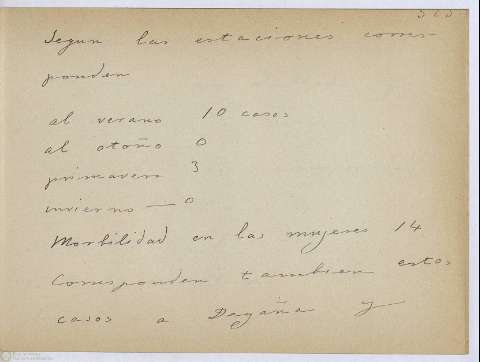 Segun las estaciones corres-
ponden
al verano 10 casos
al otoño 0
primavera 3
invierno — 0
Morbilidad en las mujeres 14
Corresponden tambien estos
casos a Degaña y